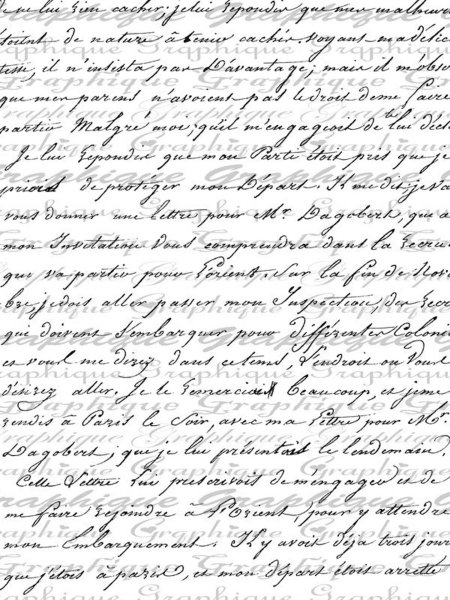 lui rien cacher; je lui repondis que mes malheurs
etoient de nature à tenir cacher. voyant ma delic
tesse, il n'insista par D'avantage; mais il m'obse
que mes parens n'avoient pas le droit de me faire
partir Malgré moi; qu'il m'engageoit de lui décl
Je lui repondis que mon Parti étoit pris que je
de proteger mon Départ. Il me dit je va
vous donner une lettre pour Mr. Dagobert, que a
mon Invitation Vous comprendra dans la recrue
que va partir pour Lorient. Sur la fin de Nove
bre je dois aller passer mon Inspection, des recr
qui doivent s'embarquer pour différentes Coloni
et vous me direz dans ce tems, l'endroit ou Vous
désirez aller. Je le remerciai beaucoup, et je me
rendis à Paris le Soir, avec ma Lettre pour Mr.
Dagobert; que je lui présentois le lendemain.
Cette Lettre lui prescrivoit de ménager et de
me faire rejoindre à L'Orient pour y attendre
mon Embarquement. Il y avoit déja trois jour
que j'etois à paris, et mon départ étoit arretté
Graphique